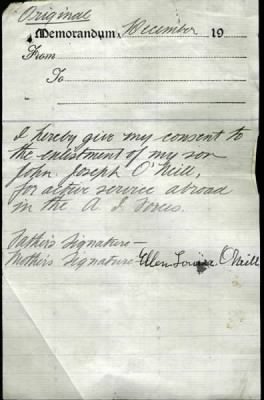 Original
Memorandum, December 19
From
To
I hereby give my consent to
the enlistment of my son
John Joseph O'Neill,
for active service abroad
in the A I Forces.
Father's Signature—
Mother's Signature— Ellen Louisa O'Neill